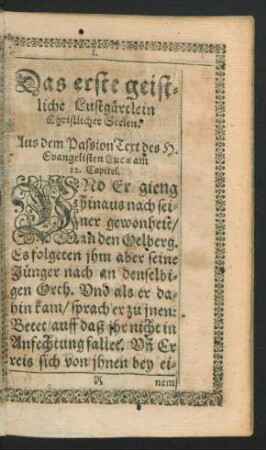 I.
Das erste geist⸗
liche Lustgärtlein
Christlicher Seelen.
Aus dem Passion Text des H.
Evangelisten Lucæ am
22. Capitel.
VNd Er gieng
hinaus nach sei⸗
ner gewonheit/
an den Oelberg.
Es folgeten jhm aber seine
Jünger nach an denselbi⸗
gen Orth. Vnd als er da⸗
hin kam/ sprach er zu jnen:
Betet/ auff daß jhr nicht in
Anfechtung fallet. Vñ Er
reis sich von jhnen bey ei⸗
A
nem